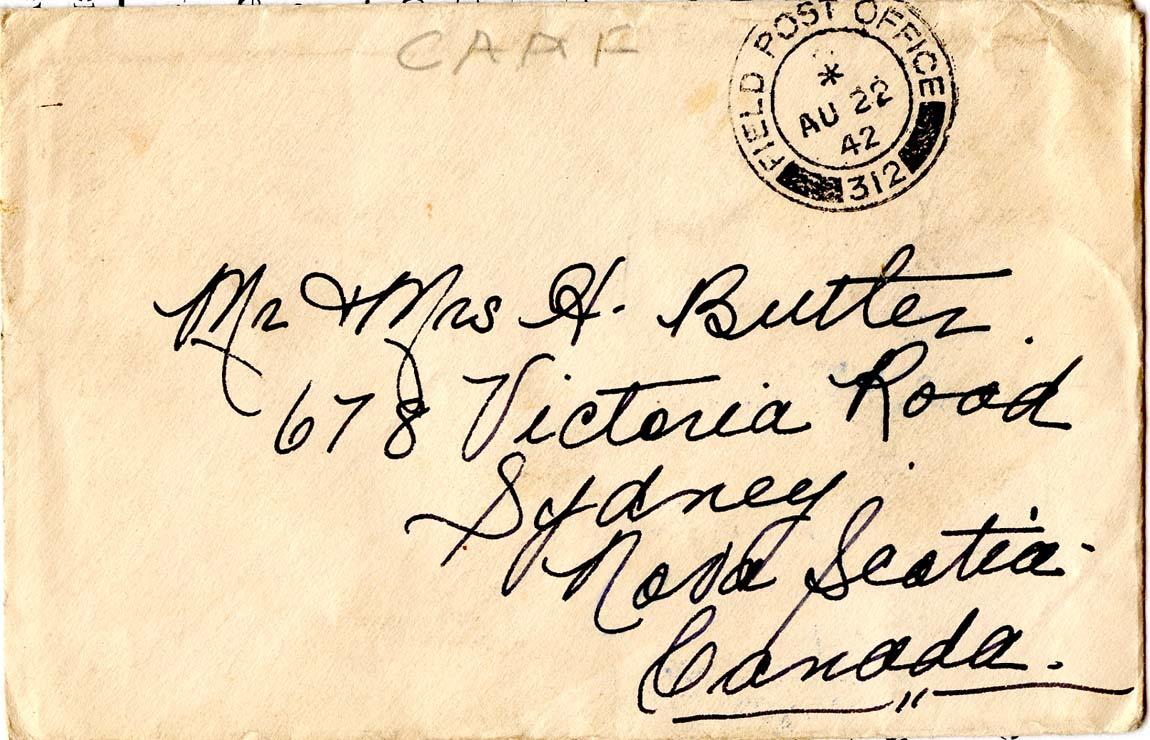 CAAF
FIELD POST OFFICE
*
AU 22
42
312
Mr & Mrs H. Butler.
678 Victoria Road
Sydney
Nova Scotia
Canada.